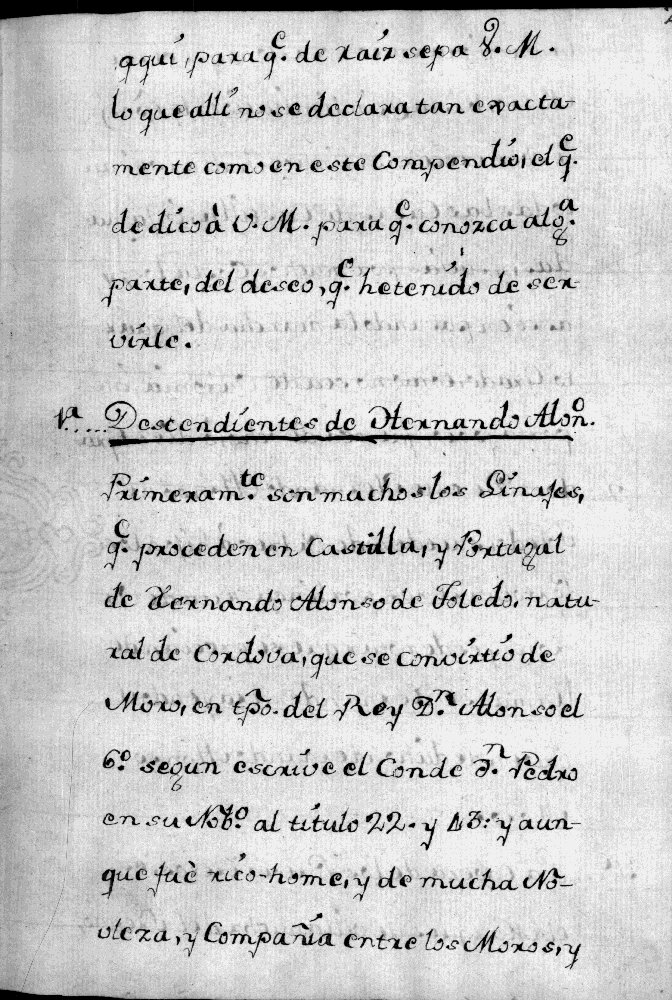 aqui, para q.^e de raiz sepa V. M.
lo que alli no se declara tan exacta-
mente como en este Compendio, el q.^e
dedico à V. M. para q.^e conozca alg.^a
parte, del deseo, q.^e he tenido de ser-
virle.
1.^a..... Descendientes de Hernando Alon.^o
Primeram.^te son muchos los Linajes,
q.^e proceden en Castilla, y Portugal
de Hernando Alonso de Toledo, natu-
ral de Cordova, que se convirtio de
Moro, en tpo. del Rey D.^n Alonso el
6.^o segun escrive el Conde d.^n Pedro
en su Nob.^o al titulo 22. y 43: y aun-
que fuè rico-home, y de mucha No-
vleza, y Compañia entre los Moros, y